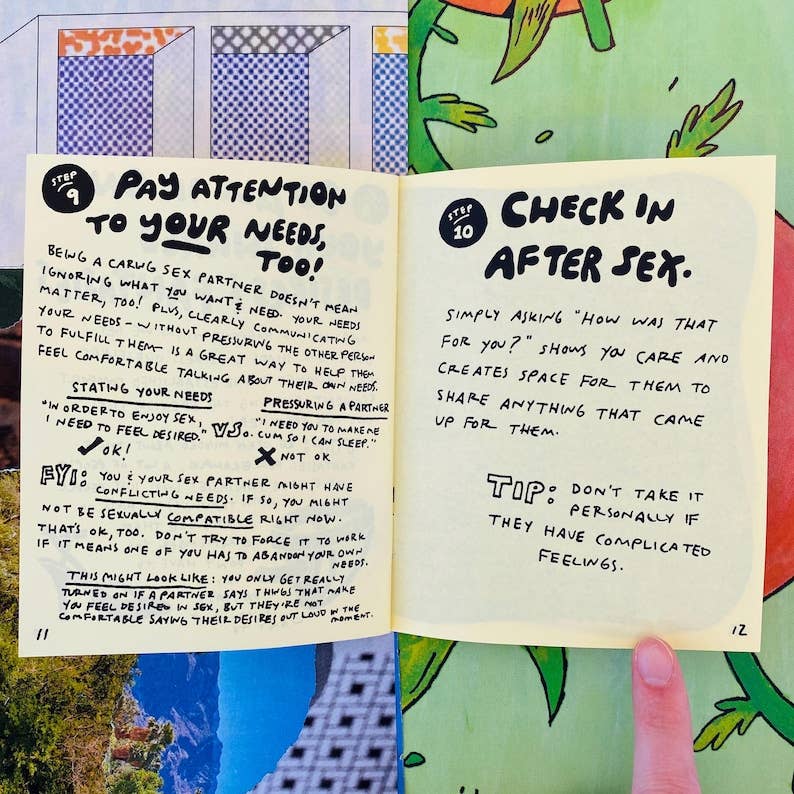 STEP 9 PAY ATTENTION
TO YOUR NEEDS,
TOO!
BEING A CARING SEX PARTNER DOESN'T MEAN
IGNORING WHAT YOU WANT & NEED. YOUR NEEDS
MATTER, TOO! PLUS, CLEARLY COMMUNICATING
YOUR NEEDS – WITHOUT PRESSURING THE OTHER PERSON
TO FULFILL THEM – IS A GREAT WAY TO HELP THEM
FEEL COMFORTABLE TALKING ABOUT THEIR OWN NEEDS.
STATING YOUR NEEDS
"IN ORDER TO ENJOY SEX,
I NEED TO FEEL DESIRED."
OK!
VS.
PRESSURING A PARTNER
"I NEED YOU TO MAKE ME
CUM SO I CAN SLEEP."
NOT OK
FYI: YOU & YOUR SEX PARTNER MIGHT HAVE
CONFLICTING NEEDS. IF SO, YOU MIGHT
NOT BE SEXUALLY COMPATIBLE RIGHT NOW.
THAT'S OK, TOO. DON'T TRY TO FORCE IT TO WORK
IF IT MEANS ONE OF YOU HAS TO ABANDON YOUR OWN
NEEDS.
THIS MIGHT LOOK LIKE: YOU ONLY GET REALLY
TURNED ON IF A PARTNER SAYS THINGS THAT MAKE
YOU FEEL DESIRED IN SEX, BUT THEY'RE NOT
COMFORTABLE SAYING THEIR DESIRES OUT LOUD IN THE
MOMENT.
11
STEP 10 CHECK IN
AFTER SEX.
SIMPLY ASKING "HOW WAS THAT
FOR YOU?" SHOWS YOU CARE AND
CREATES SPACE FOR THEM TO
SHARE ANYTHING THAT CAME
UP FOR THEM.
TIP: DON'T TAKE IT
PERSONALLY IF
THEY HAVE COMPLICATED
FEELINGS.
12